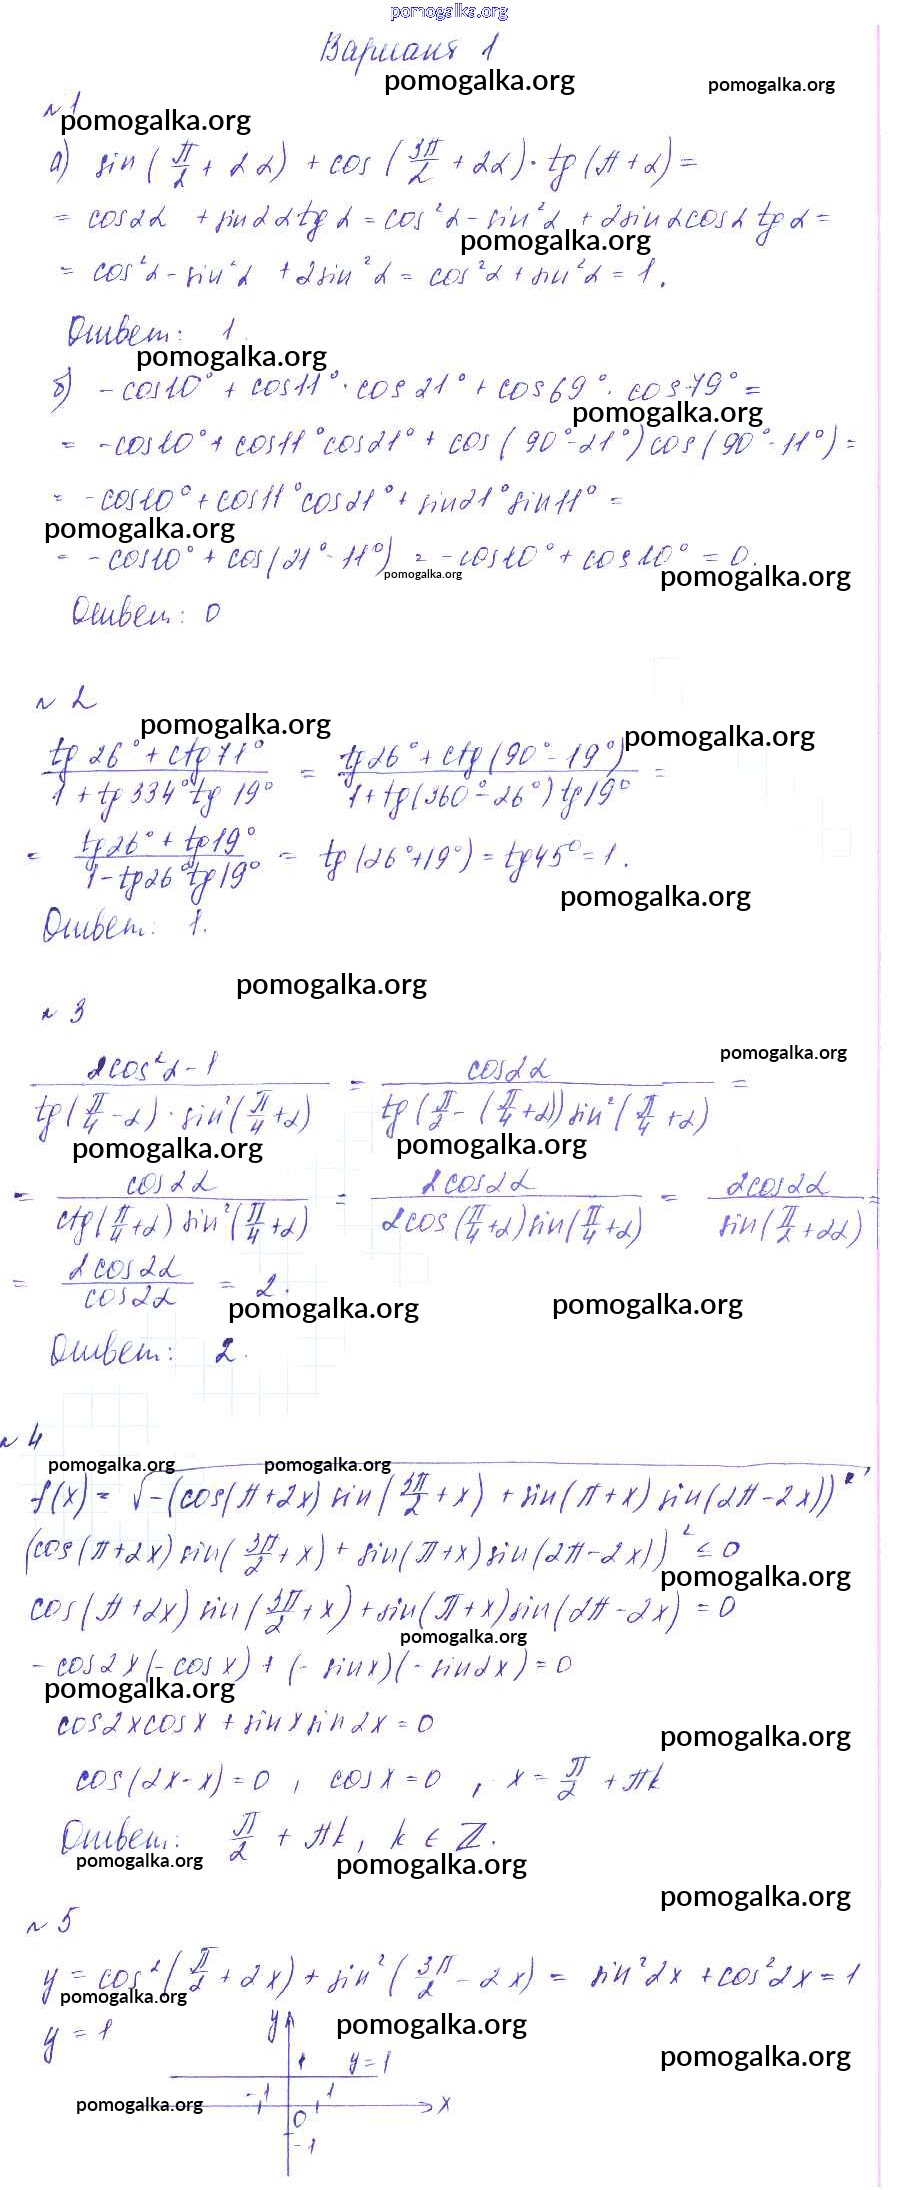 pomogalka.org
Вариант 1
pomogalka.org
pomogalka.org
№1
pomogalka.org
а) sin(π/2 + 2α) + cos(3π/2 + 2α)·tg(π+α) =
= cos2α + sin2α tgα = cos²α - sin²α + 2sinαcosα tgα =
pomogalka.org
= cos²α - sin²α + 2sin²α = cos²α + sin²α = 1.
Ответ: 1.
pomogalka.org
б) -cos10° + cos11°·cos21° + cos69°·cos79° =
pomogalka.org
= -cos10° + cos11°cos21° + cos(90°-21°)cos(90°-11°) =
= -cos10° + cos11°cos21° + sin21°sin11° =
pomogalka.org
= -cos10° + cos(21°-11°) = -cos10° + cos10° = 0.
pomogalka.org
pomogalka.org
Ответ: 0
№2
pomogalka.org
pomogalka.org
(tg26° + ctg71°)/(1 + tg334°tg19°) = (tg26° + ctg(90°-19°))/(1+tg(360°-26°)tg19°) =
= (tg26° + tg19°)/(1-tg26°tg19°) = tg(26°+19°) = tg45° = 1.
pomogalka.org
Ответ: 1.
pomogalka.org
№3
pomogalka.org
(2cos²α-1)/(tg(π/4-α)·sin²(π/4+α)) = cos2α/(tg(π/2-(π/4+α))sin²(π/4+α)) =
pomogalka.org
pomogalka.org
= cos2α/(ctg(π/4+α)sin²(π/4+α)) = 2cos2α/(2cos(π/4+α)sin(π/4+α)) = 2cos2α/sin(π/2+2α) =
= 2cos2α/cos2α = 2.
pomogalka.org
pomogalka.org
Ответ: 2.
№4
pomogalka.org
pomogalka.org
f(x) = √-(cos(π+2x)sin(3π/2+x) + sin(π+x)sin(2π-2x))²,
(cos(π+2x)sin(3π/2+x) + sin(π+x)sin(2π-2x))² ≤ 0
pomogalka.org
cos(π+2x)sin(3π/2+x)+sin(π+x)sin(2π-2x) = 0
pomogalka.org
-cos2x(-cosx) + (-sinx)(-sin2x) = 0
pomogalka.org
cos2xcosx + sinxsin2x = 0
pomogalka.org
cos(2x-x) = 0, cosx = 0, x = π/2 + πk
Ответ: π/2 + πk, k ∈ Z.
pomogalka.org
pomogalka.org
pomogalka.org
№5
y = cos²(π/2+2x) + sin²(3π/2-2x) = sin²2x + cos²2x = 1
pomogalka.org
y = 1
pomogalka.org
pomogalka.org
y
1
y=1
-1
1
x
pomogalka.org
0
-1